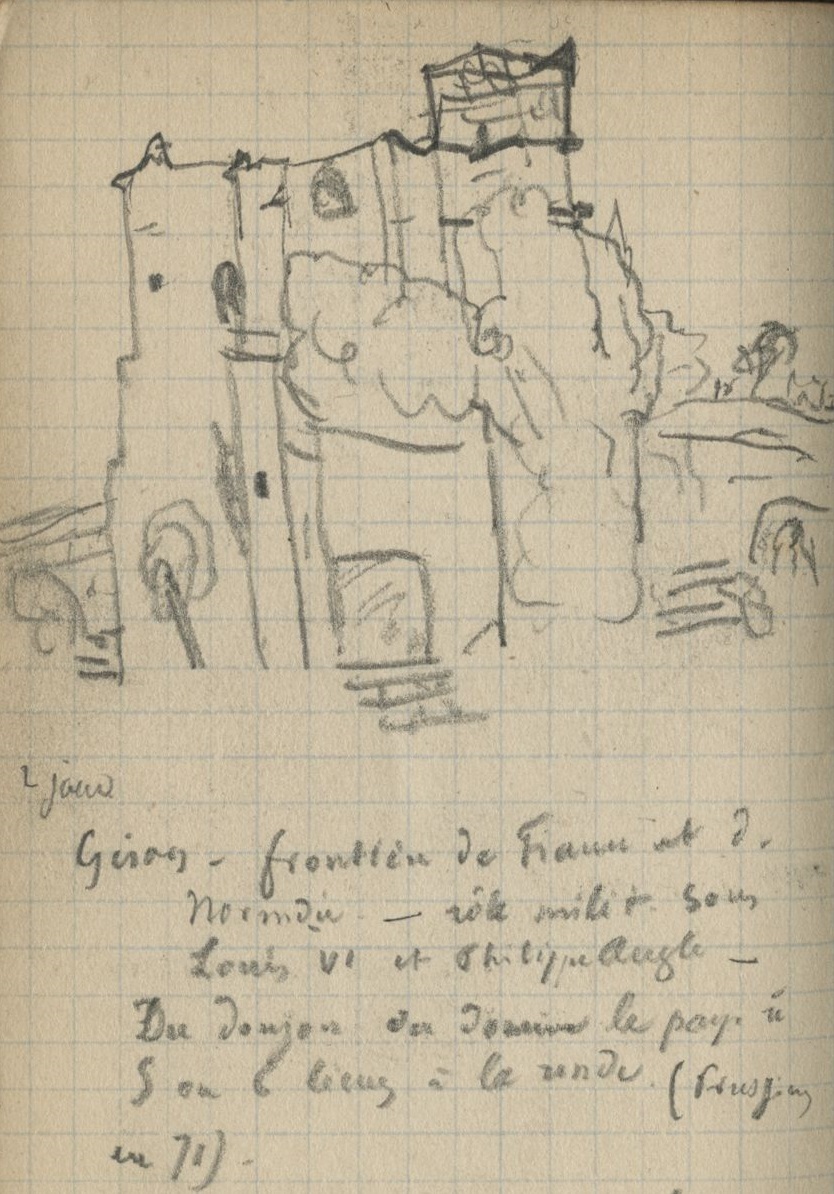 2 jours
Gisors - frontière de France et d.
Normandie - rôle milit. sous
Louis VI et Philippe Augte -
Du donjon on domine le pays à
5 ou 6 lieues à la ronde. (Prussiens
en 71) -